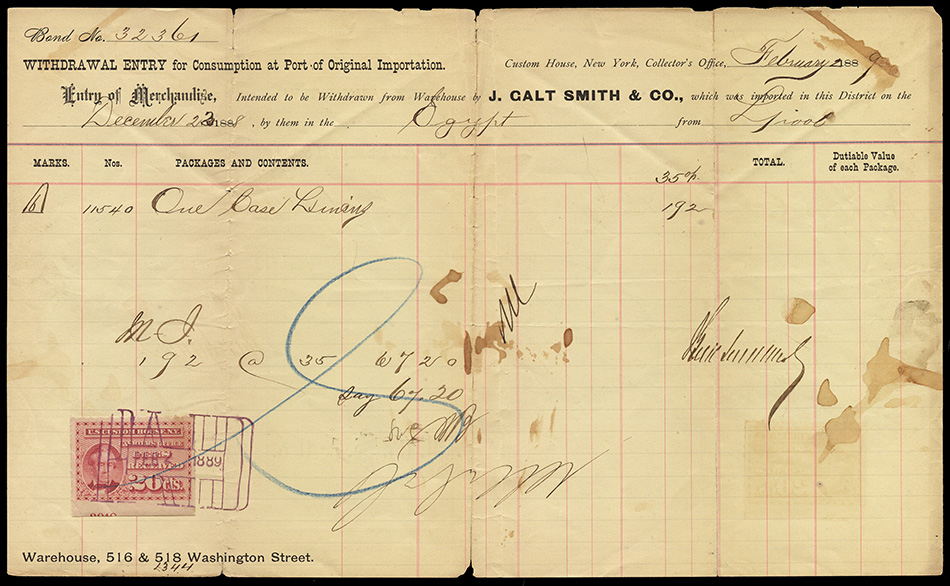 Bond No. 32361
WITHDRAWAL ENTRY for Consumption at Port of Original Importation.
Custom House, New York, Collector's Office, February 2 1889
Entry of Merchandise, Intended to be Withdrawn from Warehouse by J. GALT SMITH & CO., which was imported in this District on the
December 23 1888, by them in the Egypt from L'pool
MARKS. Nos. PACKAGES AND CONTENTS. TOTAL. Dutiable Value of each Package.
35%
11540 One Case Linens 192
M J.
192 @ 35 67 20
Say 67.20
U.S. CUSTOM HOUSE N.Y.
FEE
RECEIVED
20 CTS.
PAID
1889
PAID
Warehouse, 516 & 518 Washington Street.
1344